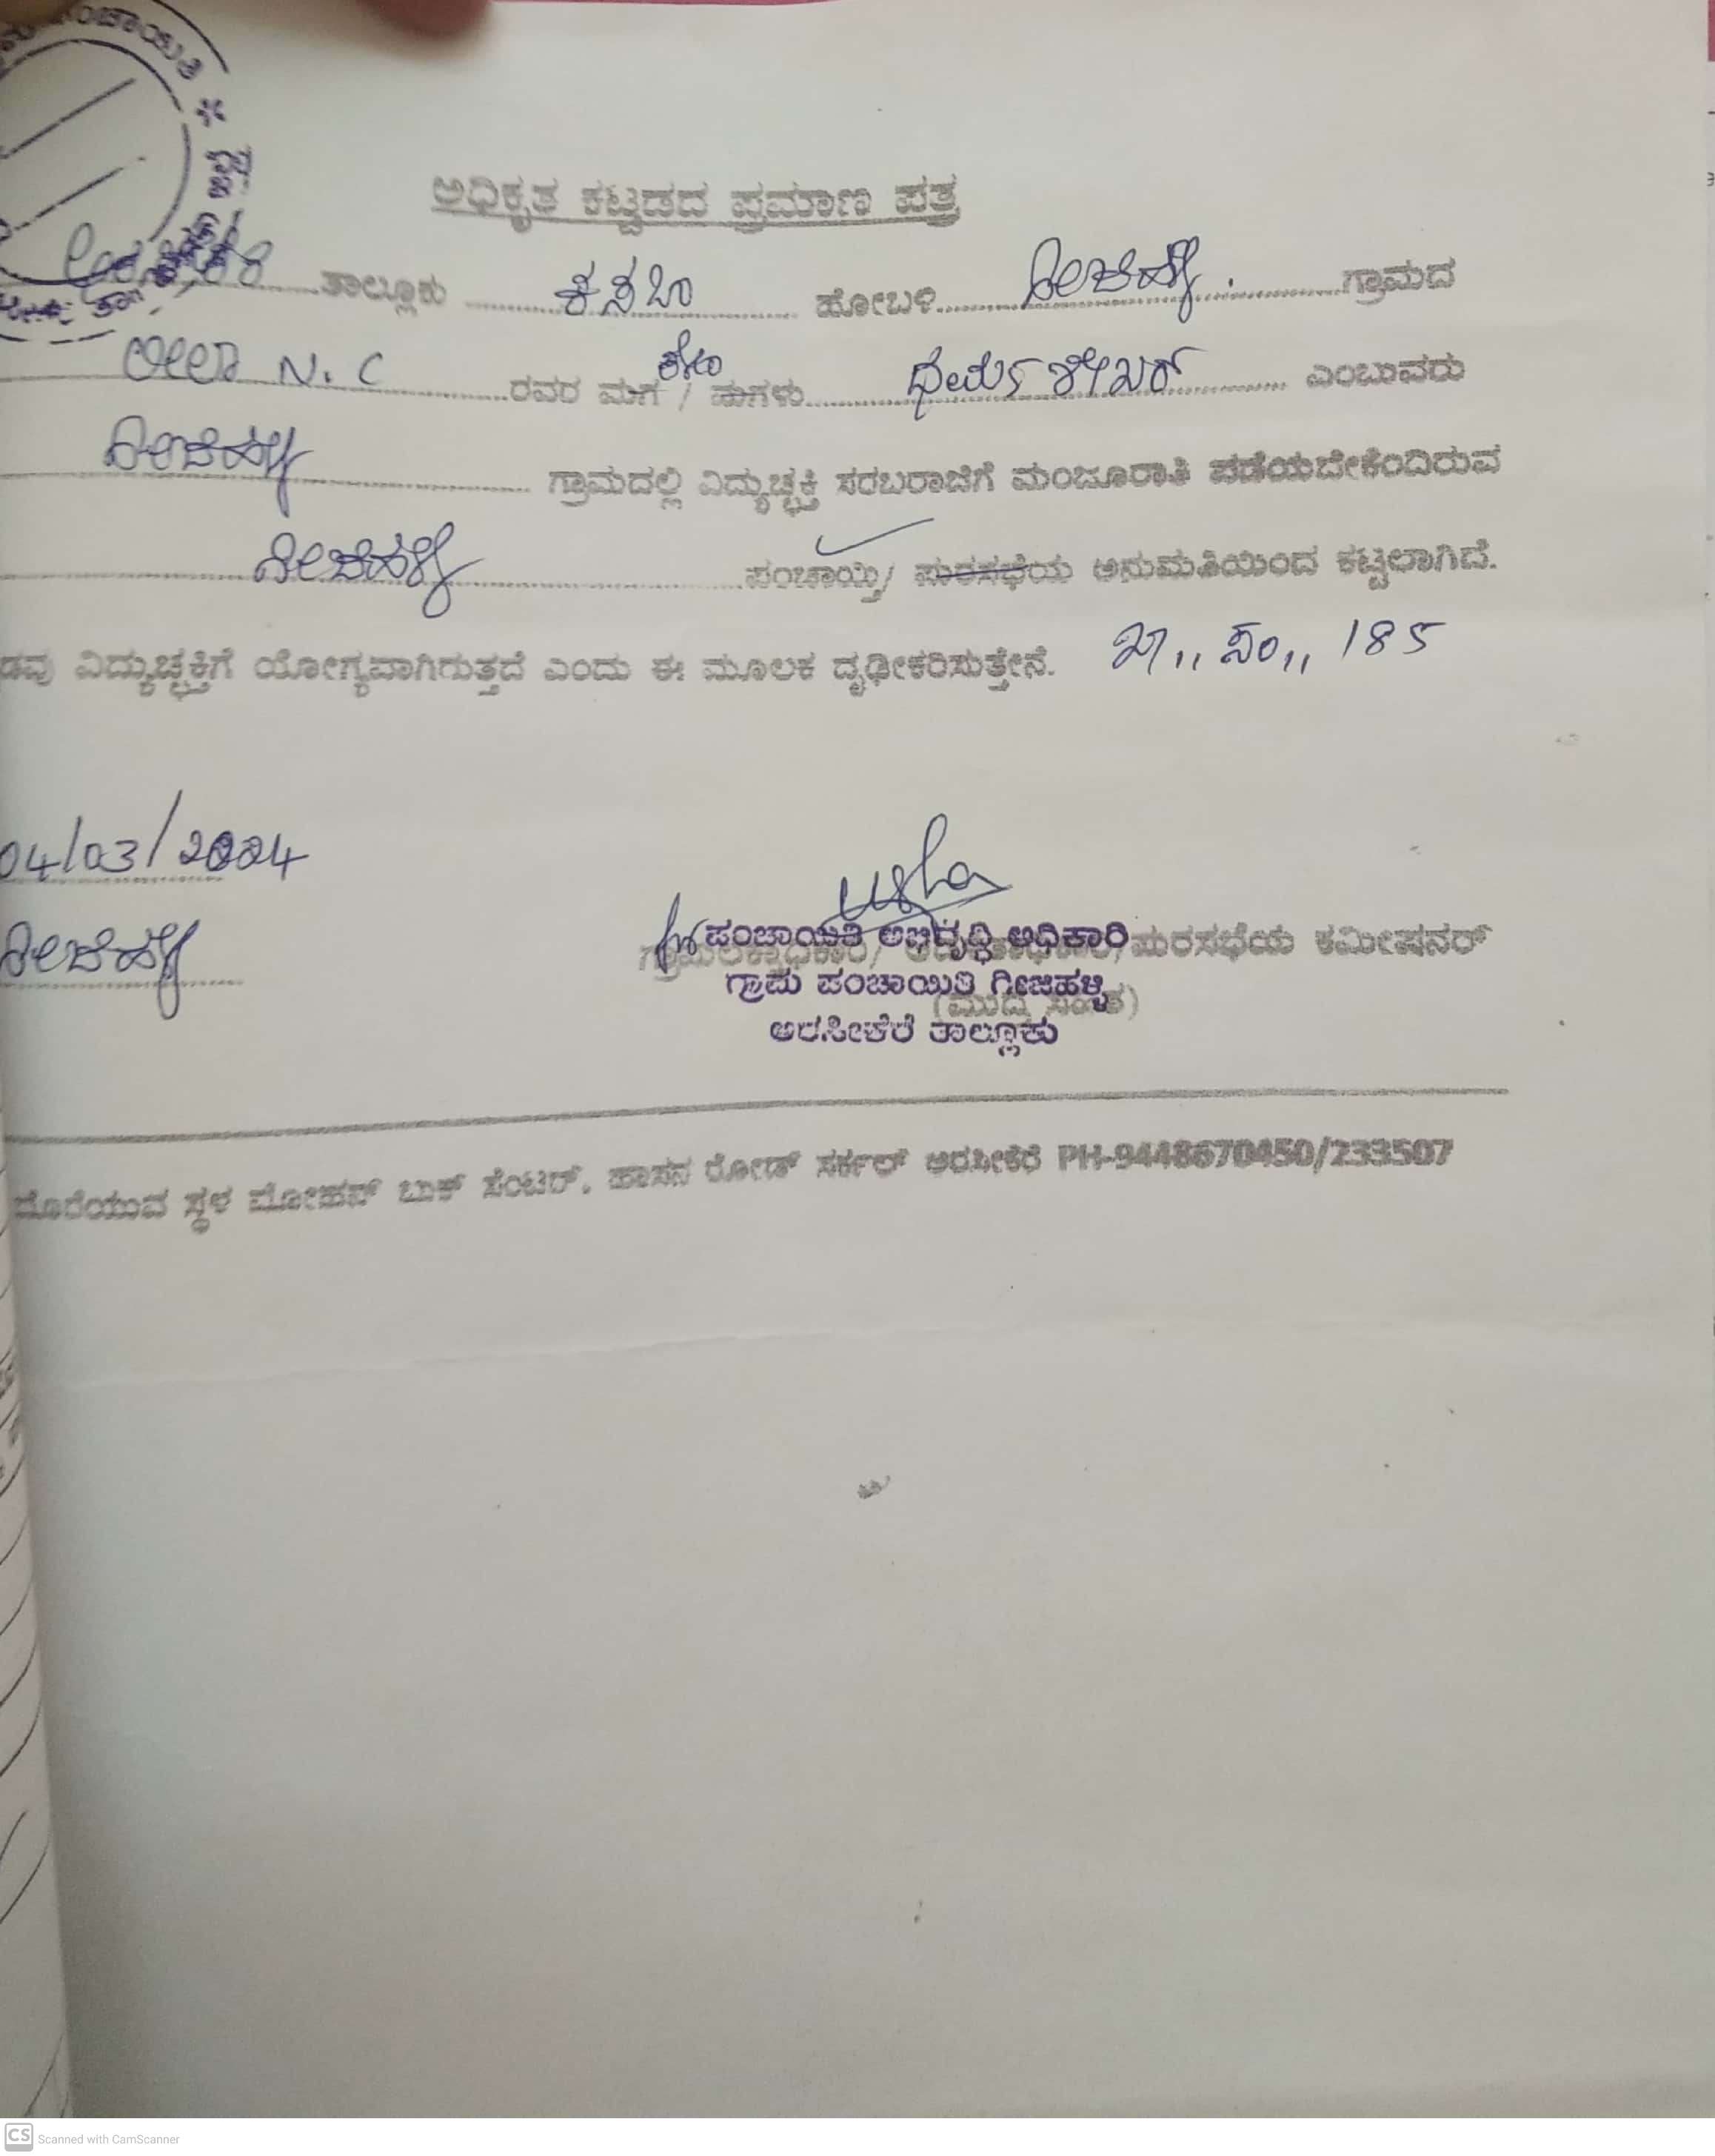 ಅಧಿಕೃತ ಕಟ್ಟಡದ ಪ್ರಮಾಣ ಪತ್ರ
ತಾಲ್ಲೂಕು ಕಸಬಾ ಹೋಬಳಿ ಗೀಜಿಹಳ್ಳಿ ಗ್ರಾಮದ
ಲೀಲಾ N. C ರವರ ಮಗ / ಮಗಳು ಕೋಂ ಧರ್ಮಶೇಖರ್ ಎಂಬುವರು
ಗೀಜಿಹಳ್ಳಿ ಗ್ರಾಮದಲ್ಲಿ ವಿದ್ಯುಚ್ಛಕ್ತಿ ಸರಬರಾಜಿಗೆ ಮಂಜೂರಾತಿ ಪಡೆಯಬೇಕೆಂದಿರುವ
ಗೀಜಿಹಳ್ಳಿ ಪಂಚಾಯ್ತಿ/ ಪುರಸಭೆಯ ಅನುಮತಿಯಿಂದ ಕಟ್ಟಲಾಗಿದೆ.
ಡವು ವಿದ್ಯುಚ್ಛಕ್ತಿಗೆ ಯೋಗ್ಯವಾಗಿರುತ್ತದೆ ಎಂದು ಈ ಮೂಲಕ ದೃಢೀಕರಿಸುತ್ತೇನೆ. ಖಾ,, ಸಂ,, 185
04/03/2024
ಗೀಜಿಹಳ್ಳಿ
ಪಂಚಾಯಿತಿ ಅಭಿವೃದ್ಧಿ ಅಧಿಕಾರಿ
ಪುರಸಭೆಯ ಕಮೀಷನರ್
ಗ್ರಾಮ ಪಂಚಾಯಿತಿ ಗೀಜಿಹಳ್ಳಿ
(ಮುದ್ರೆ ಸಹಿತ)
ಅರಸೀಕೆರೆ ತಾಲ್ಲೂಕು
ದೊರೆಯುವ ಸ್ಥಳ ಮೋಹನ್ ಬುಕ್ ಸೆಂಟರ್, ಹಾಸನ ರೋಡ್ ಸರ್ಕಲ್ ಅರಸೀಕೆರೆ PH-9448670450/233507
CS Scanned with CamScanner